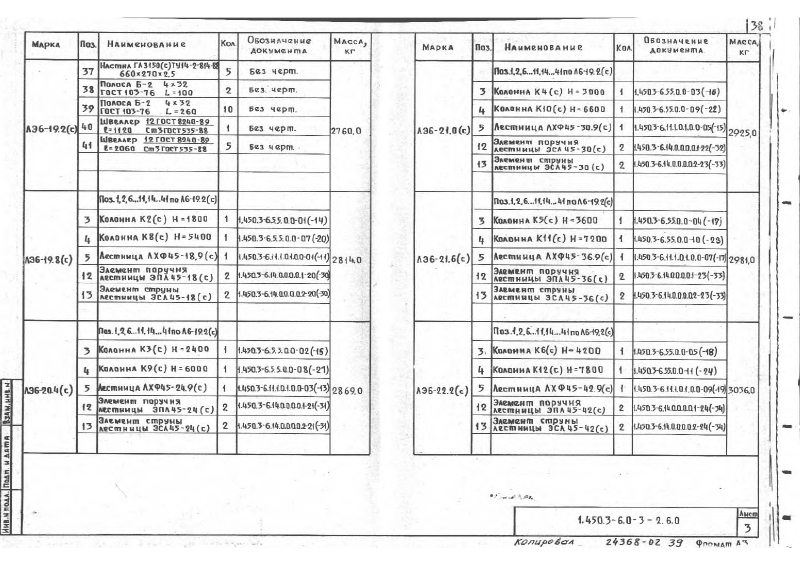 38
Марка Поз. Наименование Кол. Обозначение документа Масса, кг
37 Настил ГАЗ150(с)ТУ14-2-814-88 660×270×2.5 5 Без черт.
38 Полоса Б-2 4×32 ГОСТ 103-76 L=100 2 Без черт.
39 Полоса Б-2 4×32 ГОСТ 103-76 L=260 10 Без черт.
ЛЭ6-19.2(с) 40 Швеллер 12 ГОСТ 8240-89 ℓ=1120 Ст3 ГОСТ 535-88 1 Без черт. 2760,0
41 Швеллер 12 ГОСТ 8240-89 ℓ=2060 Ст3 ГОСТ 535-88 5 Без черт.
Поз.1,2,6...11,14...41 по Л6-19.2(с)
3 Колонна К2(с) Н=1800 1 1.450.3-6.5.5.0.0-01(-14)
4 Колонна К8(с) Н=5400 1 1.450.3-6.5.5.0.0-07(-20)
ЛЭ6-19.8(с) 5 Лестница ЛХФ45-18,9(с) 1 1.450.3-6.1.1.1.0.1.0.0-01(-11) 2814.0
12 Элемент поручня лестницы ЭПЛ45-18(с) 2 1.450.3-6.14.0.0.0.1-20(-30)
13 Элемент струны лестницы ЭСЛ45-18(с) 2 1.450.3-6.14.0.0.0.2-20(-30)
Поз.1,2,6...11,14...41 по Л6-19.2(с)
3 Колонна К3(с) Н=2400 1 1.450.3-6.5.5.0.0-02(-15)
4 Колонна К9(с) Н=6000 1 1.450.3-6.5.5.0.0-08(-21)
ЛЭ6-20.4(с) 5 Лестница ЛХФ45-24.9(с) 1 1.450.3-6.1.1.1.0.1.0.0-03(-13) 2869.0
12 Элемент поручня лестницы ЭПЛ45-24(с) 2 1.450.3-6.14.0.0.0.1-21(-31)
13 Элемент струны лестницы ЭСЛ45-24(с) 2 1.450.3-6.14.0.0.0.2-21(-31)
Марка Поз. Наименование Кол. Обозначение документа Масса, кг
Поз.1,2,6...11,14...41 по Л6-19.2(с)
3 Колонна К4(с) Н=3000 1 1.450.3-6.5.5.0.0-03(-16)
4 Колонна К10(с) Н=6600 1 1.450.3-6.5.5.0.0-09(-22)
ЛЭ6-21,0(с) 5 Лестница ЛХФ45-30.9(с) 1 1.450.3-6.1.1.1.0.1.0.0-05(-15) 2925,0
12 Элемент поручня лестницы ЭПЛ45-30(с) 2 1.450.3-6.14.0.0.0.1-22(-32)
13 Элемент струны лестницы ЭСЛ45-30(с) 2 1.450.3-6.14.0.0.0.2-23(-33)
Поз.1,2,6...11,14...41 по Л6-19.2(с)
3 Колонна К5(с) Н=3600 1 1.450.3-6.5.5.0.0-04(-17)
4 Колонна К11(с) Н=7200 1 1.450.3-6.5.5.0.0-10(-23)
ЛЭ6-21,6(с) 5 Лестница ЛХФ45-36.9(с) 1 1.450.3-6.1.1.1.0.1.0.0-07(-17) 2981,0
12 Элемент поручня лестницы ЭПЛ45-36(с) 2 1.450.3-6.14.0.0.0.1-23(-33)
13 Элемент струны лестницы ЭСЛ45-36(с) 2 1.450.3-6.14.0.0.0.2-23(-33)
Поз.1,2,6...11,14...41 по Л6-19.2(с)
3. Колонна К6(с) Н=4200 1 1.450.3-6.5.5.0.0-05(-18)
4 Колонна К12(с) Н=7800 1 1.450.3-6.5.5.0.0-11(-24)
ЛЭ6-22.2(с) 5 Лестница ЛХФ45-42.9(с) 1 1.450.3-6.1.1.1.0.1.0.0-09(-19) 3036,0
12 Элемент поручня лестницы ЭПЛ45-42(с) 2 1.450.3-6.14.0.0.0.1-24(-34)
13 Элемент струны лестницы ЭСЛ45-42(с) 2 1.450.3-6.14.0.0.0.2-24(-34)
Инв.№ подл. Подп. и дата Взам.инв.№
1.450.3-6.0-3-2.6.0
Лист
3
Копировал 24368-02 39 Формат А3